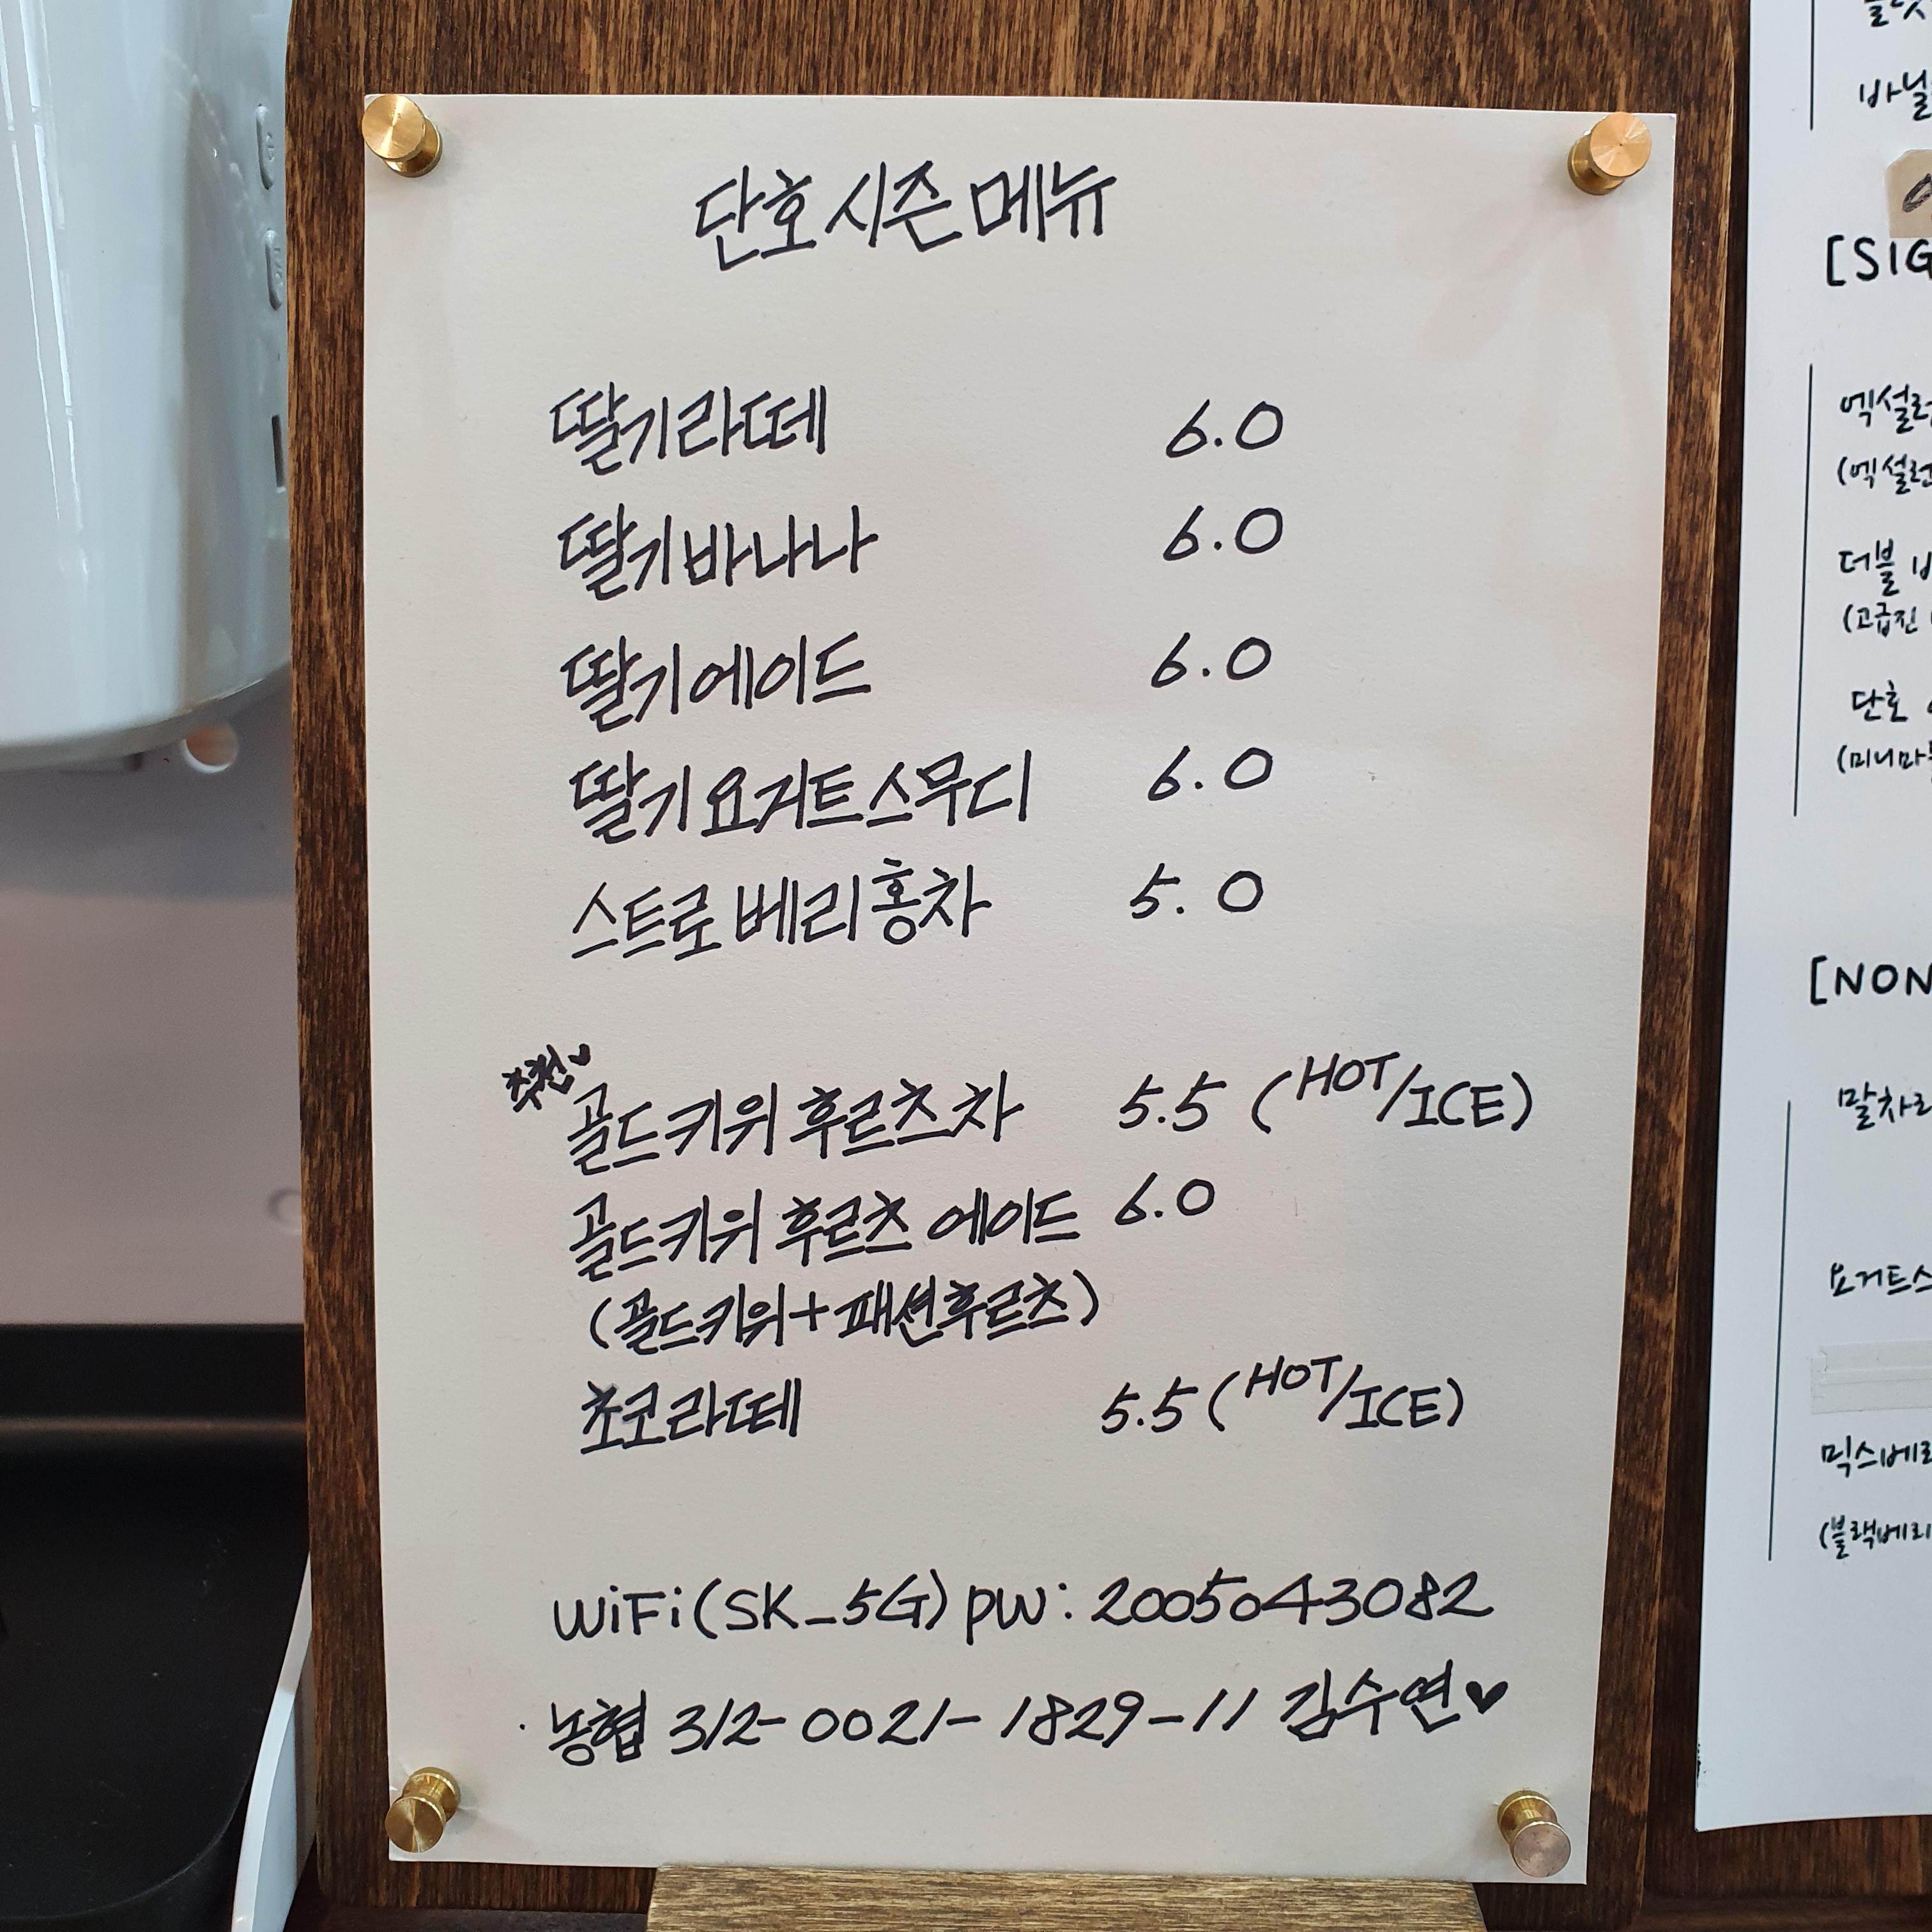 단호 시즌 메뉴
딸기라떼 6.0
딸기바나나 6.0
딸기에이드 6.0
딸기요거트스무디 6.0
스트로베리홍차 5.0
추천♥
골드키위후르츠차 5.5 (HOT/ICE)
골드키위 후르츠 에이드 6.0
(골드키위+패션후르츠)
초코라떼 5.5 (HOT/ICE)
WiFi(SK_5G) PW: 2005043082
· 농협 312-0021-1829-11 김수연♥
바닐
[SIG
엑설런
(엑설런
더블 바
(고급진
단호
(미니마
[NON
말차라
요거트스
믹스베리
(블랙베리